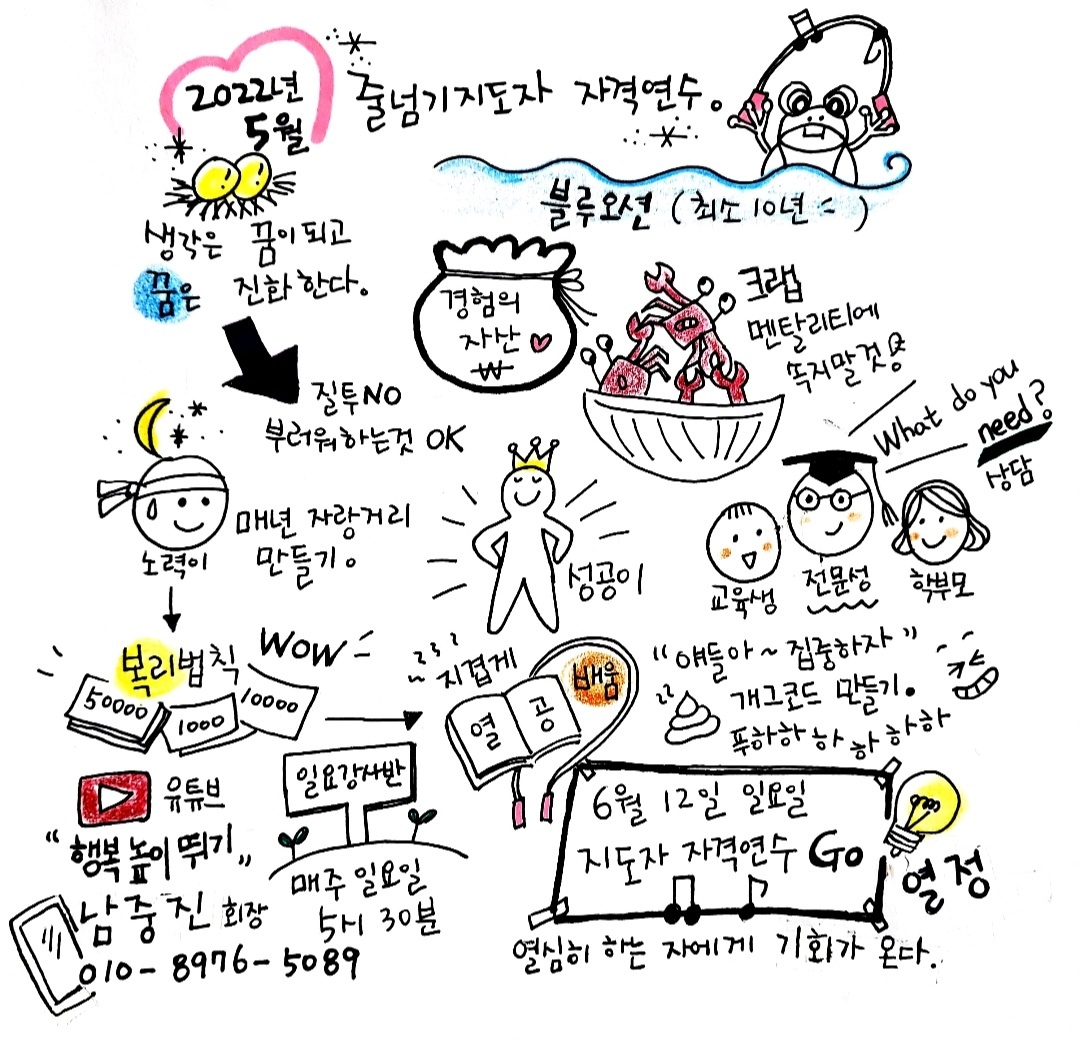 2022년
5월
줄넘기지도자 자격연수.
블루오션 (최소 10년 = )
생각은 꿈이 되고
꿈은 진화한다.
경험의
자산
₩
크랩
멘탈리티에
쏙지말것
질투NO
부러워하는것 OK
What do you
need?
상담
노력이
매년 자랑거리
만들기.
성공이
교육생
전문성
학부모
복리법칙
WOW
50000
1000
10000
zzz
지겹게
열공
배움
"얘들아~ 집중하자"
개그코드 만들기.
푸하하하하하하
zz
유튜브
"행복높이뛰기"
남중진 회장
010-8976-5089
일요강사반
매주 일요일
5시 30분
6월 12일 일요일
지도자 자격연수 Go
열정
열심히 하는 자에게 기회가 온다.